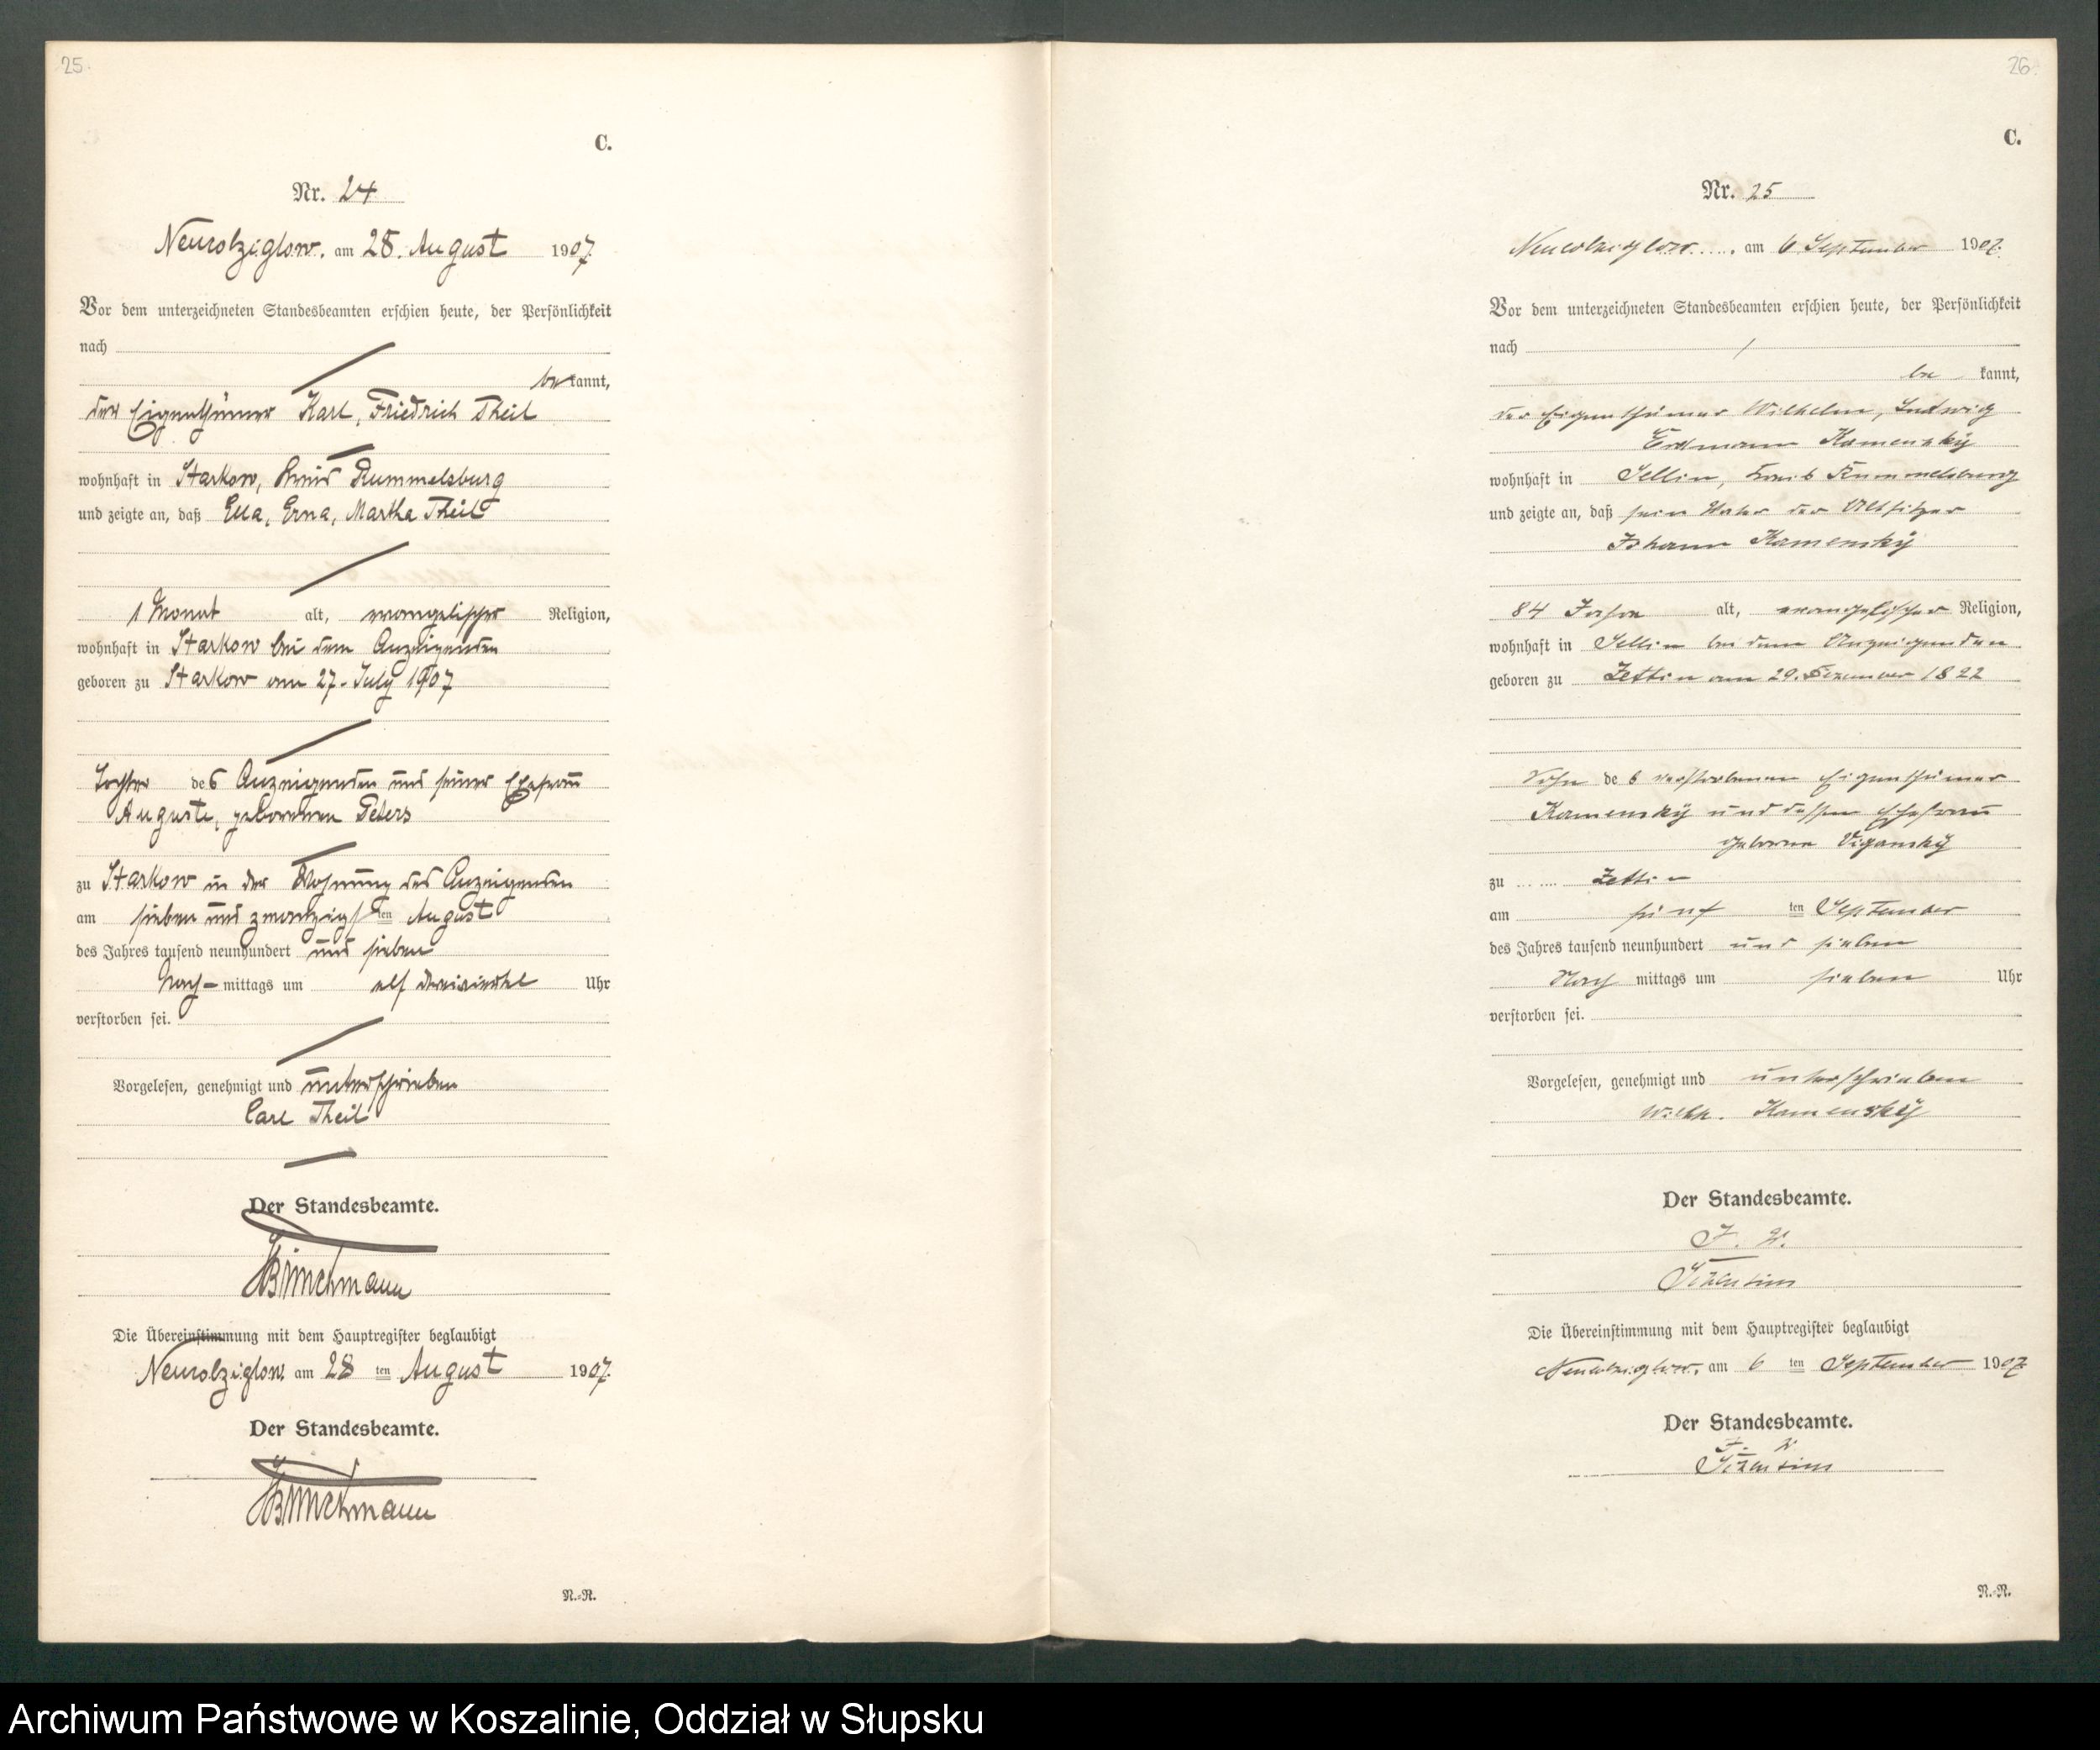 25.
C.
Nr. 24
Neukolziglow. am 28. August 1907.
Vor dem unterzeichneten Standesbeamten erschien heute, der Persönlichkeit
nach
bekannt,
der Eigenthümer Karl, Friedrich Theil
wohnhaft in Starkow, Kreis Rummelsburg
und zeigte an, daß Ella, Erna, Martha Theil
1 Monat alt, evangelischer Religion,
wohnhaft in Starkow bei dem Anzeigenden
geboren zu Starkow am 27. July 1907
Tochter des Anzeigenden und seiner Ehefrau
Auguste, geborenen Peters
zu Starkow in der Wohnung des Anzeigenden
am sieben und zwanzigsten August
des Jahres tausend neunhundert und sieben
Nach-mittags um elf dreiviertel Uhr
verstorben sei.
Vorgelesen, genehmigt und unterschrieben
Carl Theil
Der Standesbeamte.
Die Übereinstimmung mit dem Hauptregister beglaubigt
Neukolziglow. am 28 ten August 1907.
Der Standesbeamte.
N.-R.
26.
C.
Nr. 25
Neukolziglow. am 6 September 1907.
Vor dem unterzeichneten Standesbeamten erschien heute, der Persönlichkeit
nach
be kannt,
der Eigenthümer Wilhelm, Ludwig
Erdmann Kamenský
wohnhaft in Sellin, Kreis Rummelsburg
und zeigte an, daß sein Vater der Altsitzer
Johann Kamenský
84 Jahre alt, evangelischer Religion,
wohnhaft in Sellin bei dem Anzeigenden
geboren zu Zettin am 29. Dezember 1822
Sohn des verstorbenen Eigenthümer
Kamenský und dessen Ehefrau
geborne Viganský
zu Zettin
am fünf ten September
des Jahres tausend neunhundert und sieben
Nach mittags um sieben Uhr
verstorben sei.
Vorgelesen, genehmigt und unterschrieben
Wilh. Kamenský
Der Standesbeamte.
J. V.
Die Übereinstimmung mit dem Hauptregister beglaubigt
Neukolziglow. am 6 ten September 1907
Der Standesbeamte.
J. V.
N.-R.
Archiwum Państwowe w Koszalinie, Oddział w Słupsku